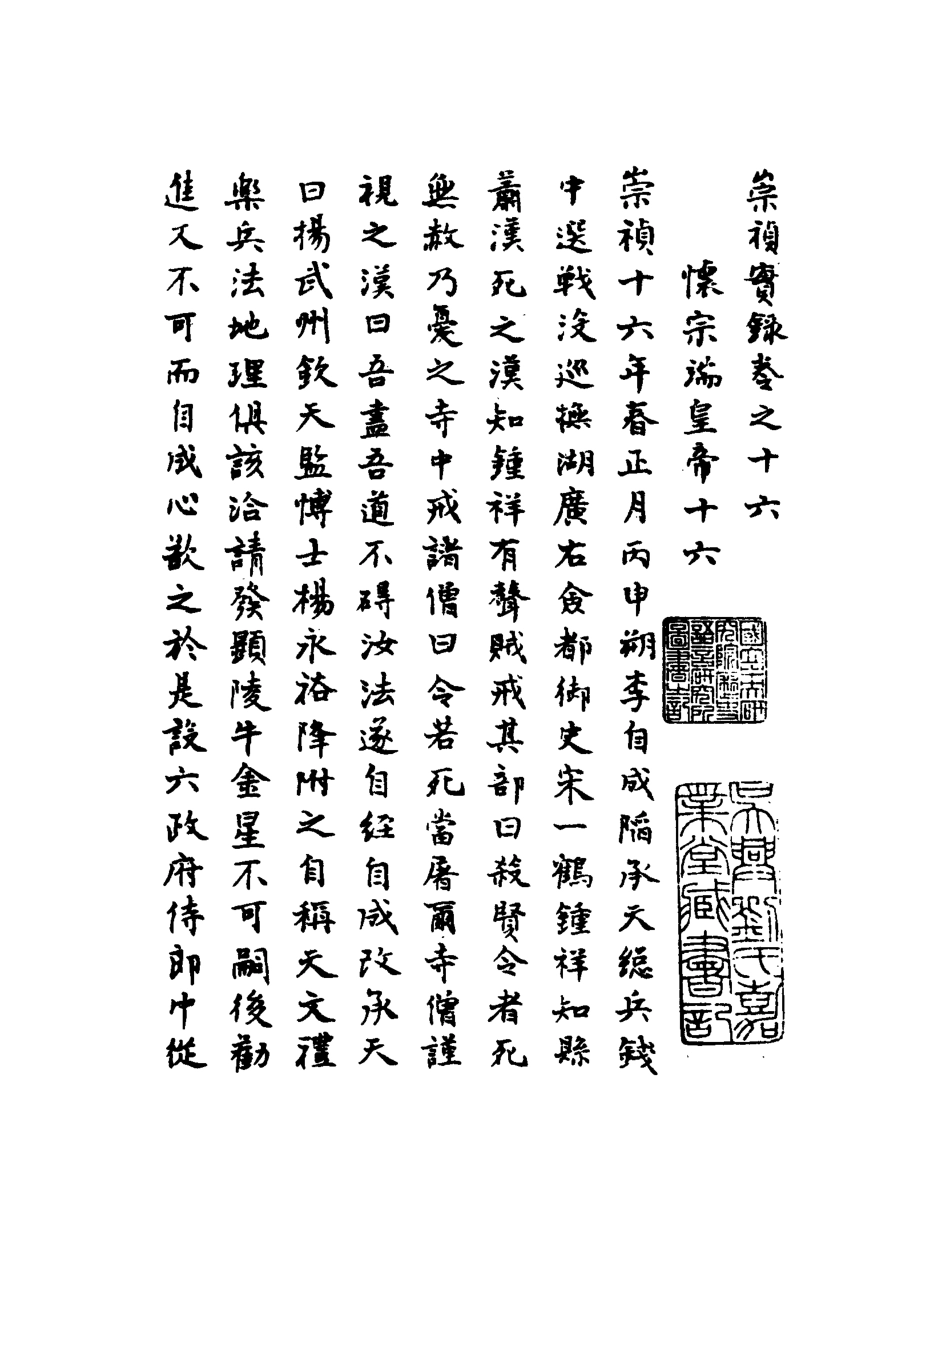 崇禎實錄卷之十六
懷宗端皇帝十六
崇禎十六年春正月丙申朔李自成陷承天總兵錢
中選戰沒巡撫湖廣右僉都御史宋一鶴鍾祥知縣
蕭漢死之漢知鍾祥有聲賊戒其部曰殺賢令者死
無赦乃憂之寺中戒諸僧曰令若死當屠爾寺僧謹
視之漢曰吾盡吾道不碍汝法遂自經自成改承天
曰揚武州欽天監博士楊永裕降附之自稱天文禮
樂兵法地理俱該洽請發顯陵牛金星不可嗣後勸
進又不可而自成心歆之於是設六政府侍郎中從
國立中央研究院歷史語言研究所圖書記
吳興劉氏嘉業堂藏書記